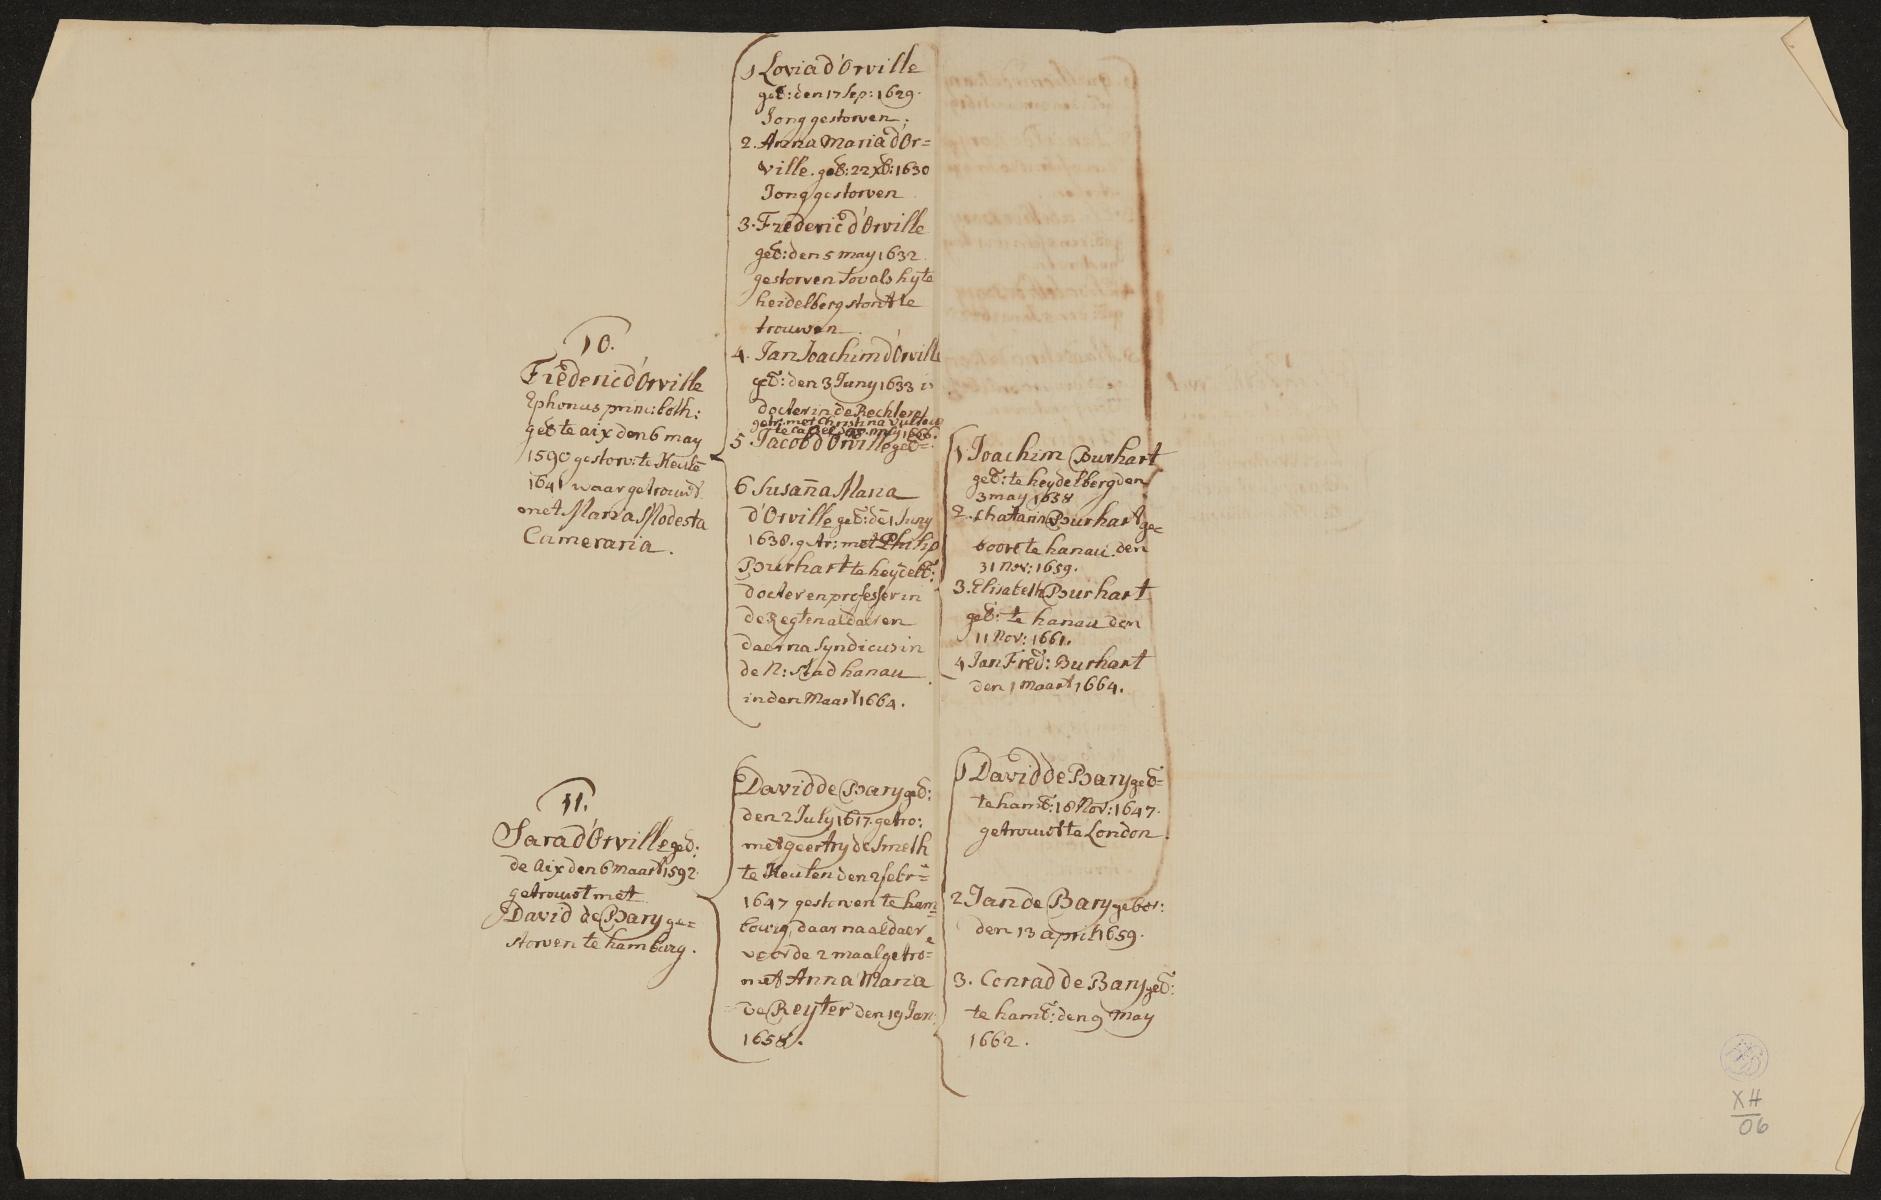 10.
Frederic d'Orville
Ephorus princ: both:
geb te aix den 6 may
1590 gestorv: te Keule
1641 waar getrouwt
met Maria Modesta
Cameraria.
1 Lovia d'Orville
geb: den 17 sep: 1629.
Jong gestorven.
2. Anna Maria d'Or=
ville. geb: 22 xb: 1630
Jong gestorven
3. Frederic d'Orville
geb: den 5 may 1632.
gestorven so als hy te
heidelberg stont te
trouwen.
4. Jan Joachim d'Orville
geb: den 3 Juny 1633 is
docter in de Rechten
getr: met Christina
te Cassel 1666.
5 Jacob d'Orville geb=
6 Susaña Maria
d'Orville geb: dē 1 Juny
1638. getr: met Philip
Burhart te heydelb:
docter en professer in
de Regten aldaer en
daerna Syndicus in
de N: Stad hanau
in den Maart 1664.
1 Joachim Burhart
geb: te heydelberg den
3 may 1658
2. Chatarin Burhart ge=
boore te hanau. den
31 Nov: 1659.
3. Elisabeth Burhart
geb: te hanau den
11 Nov: 1661.
4 Jan Fred: Burhart
den 1 Maart 1664.
11.
Sara d'Orville geb:
de Aix den 6 maart 1592.
getrouwt met
David de Bary ge=
storven te hamburg.
David de Bary geb:
den 2 July 1617. getro:
met geertry de Smeth
te Keulen den 2 febr=
1647 gestorven te ham=
bourg, daar na aldaer
voor de 2 maal getro=
met Anna Maria
de Reyter den 19 Jan:
1658.
1 David de Bary geb=
te hamb: 18 Nov: 1647.
getrouwt te London.
2 Jan de Bary gebor:
den 13 april 1659.
3. Conrad de Bary geb:
te hamb: den 9 May
1662.
XH
06